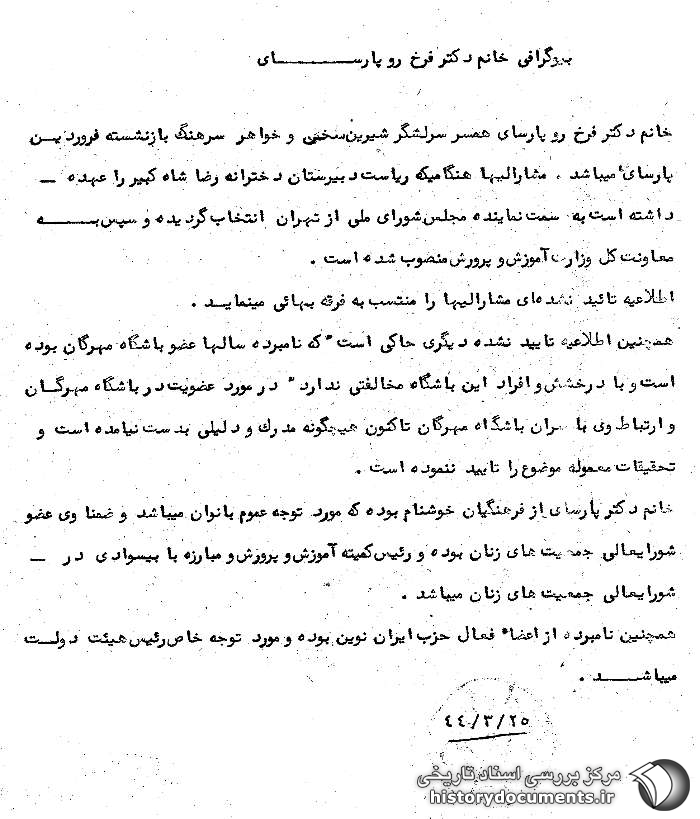 بیوگرافی خانم دکتر فرخ رو پارســـــــــای
خانم دکتر فرخ رو پارسای همسر سرلشگر شیرین‌سخنی و خواهر سرهنگ بازنشسته فروردیــن
پارسای میباشد ، مشارالیها هنگامیکه ریاست دبیرستان دخترانه رضا شاه کبیر را عهده ــ
داشته است به سمت نماینده مجلس شورای ملی از تهران انتخاب گردیده و سپس بـــــه
معاونت کل وزارت آموزش و پرورش منصوب شده است .
اطلاعیه تائید نشده‌ای مشارالیها را منتسب به فرقه بهائی مینمایــد .
همچنین اطلاعیه تایید نشده دیگری حاکی است "که نامبرده سالها عضو باشگاه مهرگان بوده
است و با درخشش و افراد این باشگاه مخالفتی ندارد" در مورد عضویت در باشگاه مهرگــان
و ارتباط وی با سران باشگاه مهرگان تاکنون هیچگونه مدرک و دلیلی بدست نیامده است و
تحقیقات معموله موضوع را تایید ننموده است .
خانم دکتر پارسای از فرهنگیان خوشنام بوده که مورد توجه عموم بانوان میباشد و ضمنا وی عضو
شورایعالی جمعیت های زنان بوده و رئیس کمیته آموزش و پرورش و مبارزه با بیسوادی در ــ
شورایعالی جمعیت های زنان میباشد .
همچنین نامبرده از اعضاء فعال حزب ایران نوین بوده و مورد توجه خاص رئیس هیئت دولــت
میباشـــــد .
٤٤/٣/٢٥
مرکز بررسی اسناد تاریخی
historydocuments.ir